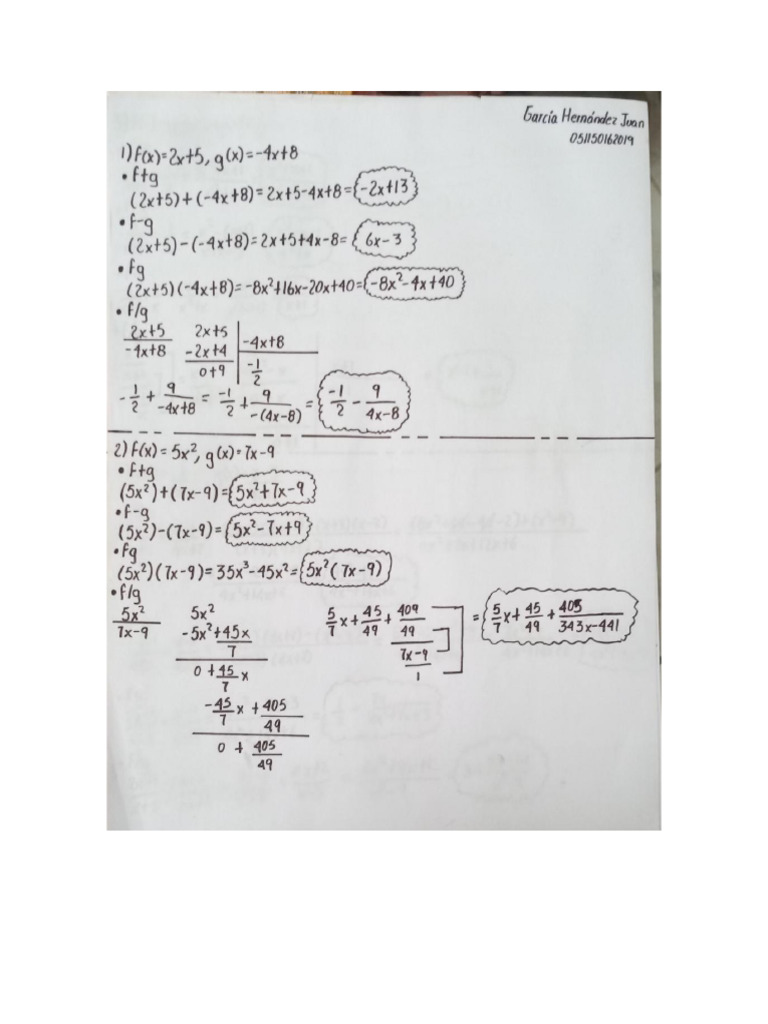 García Hernández Juan
051150162019
1) f(x)=2x+5, g(x)=-4x+8
• f+g
(2x+5)+(-4x+8)=2x+5-4x+8=-2x+13
• f-g
(2x+5)-(-4x+8)=2x+5+4x-8=6x-3
• fg
(2x+5)(-4x+8)=-8x²+16x-20x+40=-8x²-4x+40
• f/g
2x+5 2x+5
-4x+8 -2x+4 -4x+8
0+9 -1/2
-1/2 + 9/-4x+8 = -1/2 + 9/-(4x-8) = -1/2 - 9/4x-8
2) f(x)=5x², g(x)=7x-9
• f+g
(5x²)+(7x-9)=5x²+7x-9
• f-g
(5x²)-(7x-9)=5x²-7x+9
• fg
(5x²)(7x-9)=35x³-45x²=5x²(7x-9)
• f/g
5x²/7x-9 5x² 5/7x+45/49+409/49/7x-9/1 = 5/7x+45/49+405/343x-441
-5x²+45x/7
0+45/7x
-45/7x+405/49
0+405/49